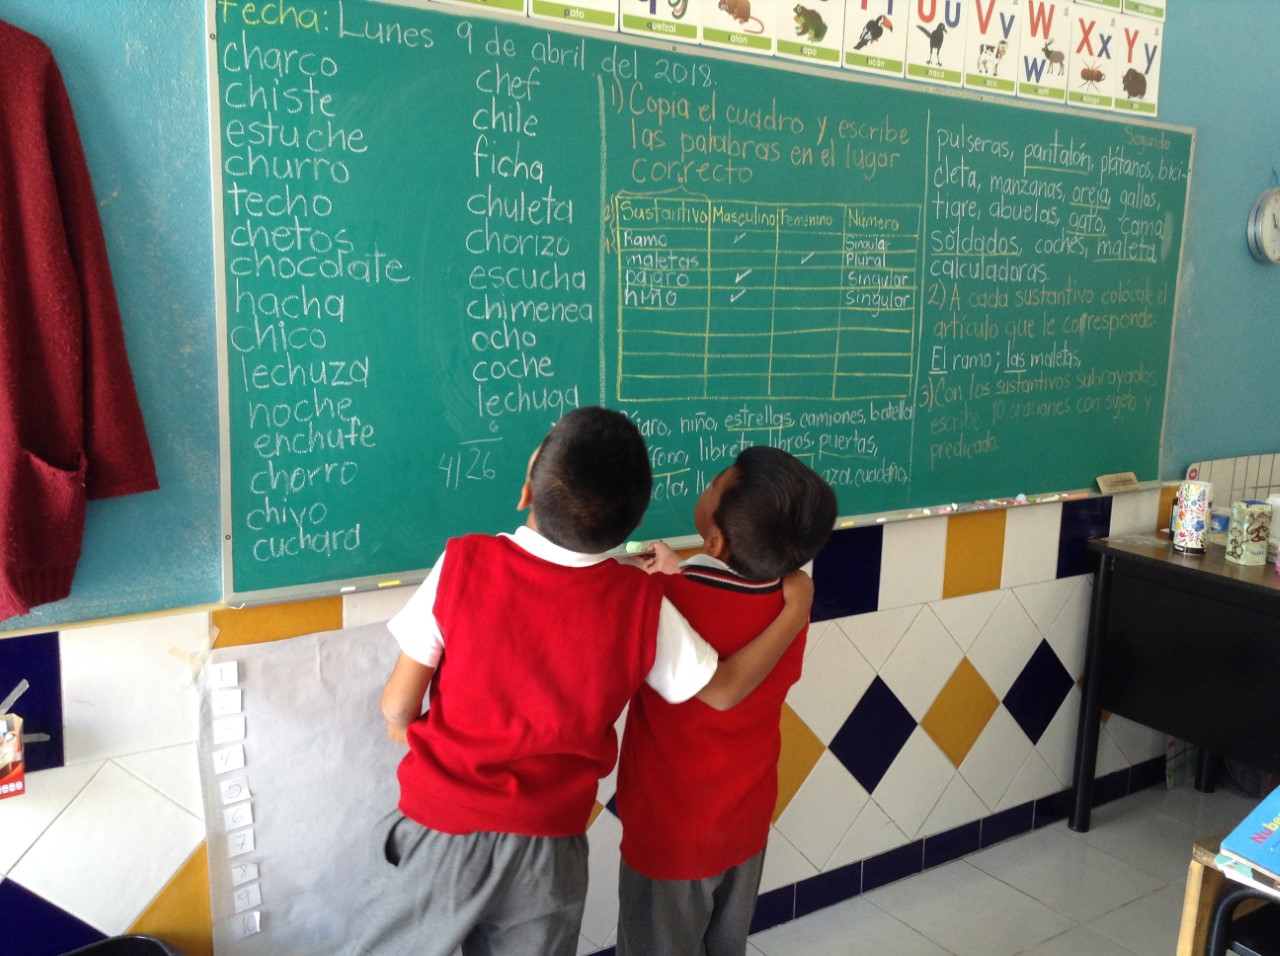 Fecha: Lunes 9 de abril del 2018.
charco
chiste
estuche
churro
techo
chetos
chocolate
hacha
chico
lechuza
noche
enchufe
chorro
chivo
cuchara
chef
chile
ficha
chuleta
chorizo
escucha
chimenea
ocho
coche
lechuga
6
4|26
1) Copia el cuadro y escribe
las palabras en el lugar
correcto
Sustantivo Masculino Femenino Número
Ramo ✓ Singular
maletas ✓ Plural
pájaro ✓ Singular
niño ✓ Singular
niño, estrellas, camiones, botella
libreta, libros, puertas,
cuaderno,
Segundo
pulseras, pantalón, plátanos, bici-
cleta, manzanas, oreja, gallos,
tigre, abuelas, gato, cama,
soldados, coches, maleta,
calculadoras.
2) A cada sustantivo colócale el
artículo que le corresponde:
El ramo; las maletas,
3) Con los sustantivos subrayados
escribe 10 oraciones con sujeto y
predicado.
quetzal
ratón
sapo
tucán
Uu
Vv
vaca
Ww
Xx
Yy
1
4
5
6
7
8
9
10